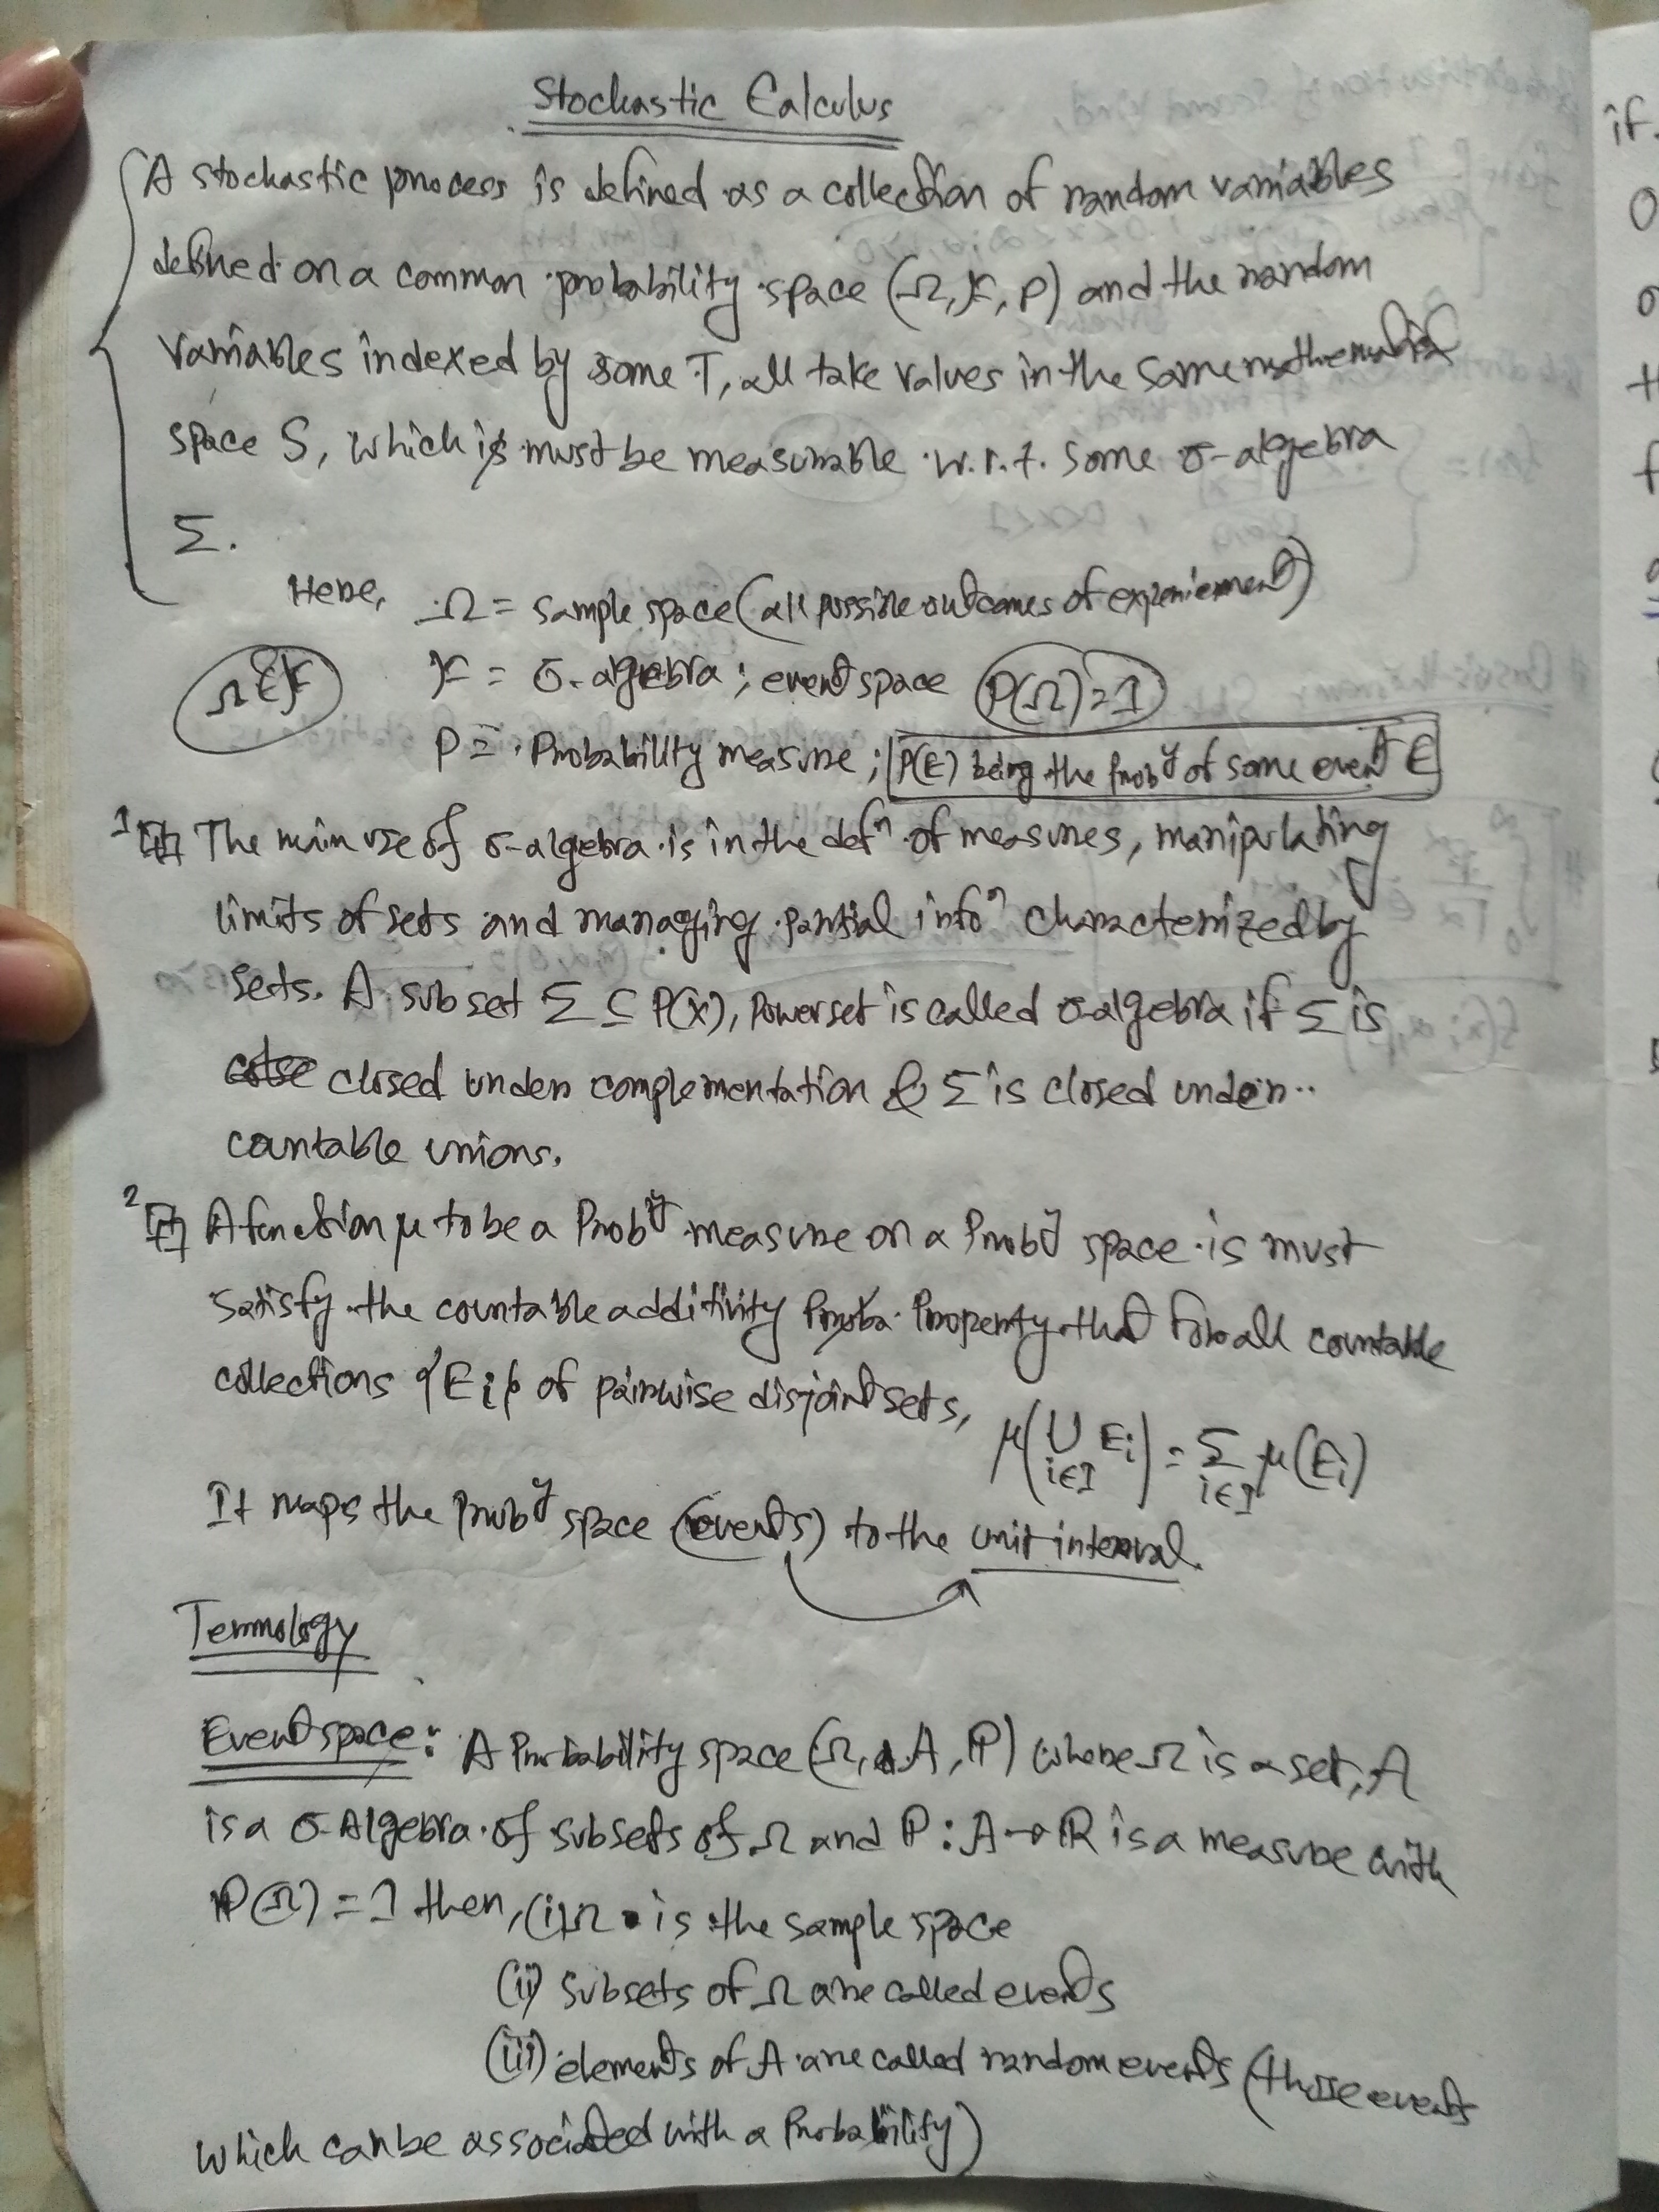 Stochastic Calculus
A stochastic process is defined as a collection of random variables
defined on a common probability space (Ω, F, P) and the random
variables indexed by some T, all take values in the same mathematical
space S, which is must be measurable w.r.t. some σ-algebra
Σ.
Here, Ω = sample space (all possible outcomes of experiement)
F = σ-algebra; event space P(Ω)=1
Ω ∈ F
P = Probability measure; P(E) being the Prob^y of some event E
1 The main use of σ-algebra is in the def^n of measures, manipulating
limits of sets and managing partial info^n characterized by
sets. A subset Σ ⊆ P(X), Powerset is called σ-algebra if Σ is
closed under complementation & Σ is closed under
countable unions.
2 A function μ to be a Prob^y measure on a Prob^y space is must
satisfy the countable additivity Property that for all countable
collections {Ei} of pairwise disjoint sets,
μ(∪ i∈I Ei) = Σ i∈I μ(Ei)
It maps the prob^y space (events) to the unit interval.
Termology
Event space: A Probability space (Ω, A, ℙ) where Ω is a set, A
is a σ-Algebra of subsets of Ω and ℙ: A → ℝ is a measure with
ℙ(Ω) = 1 then, (i) Ω is the sample space
(ii) subsets of Ω are called events
(iii) elements of A are called random events (those events
which can be associated with a Probability)
if